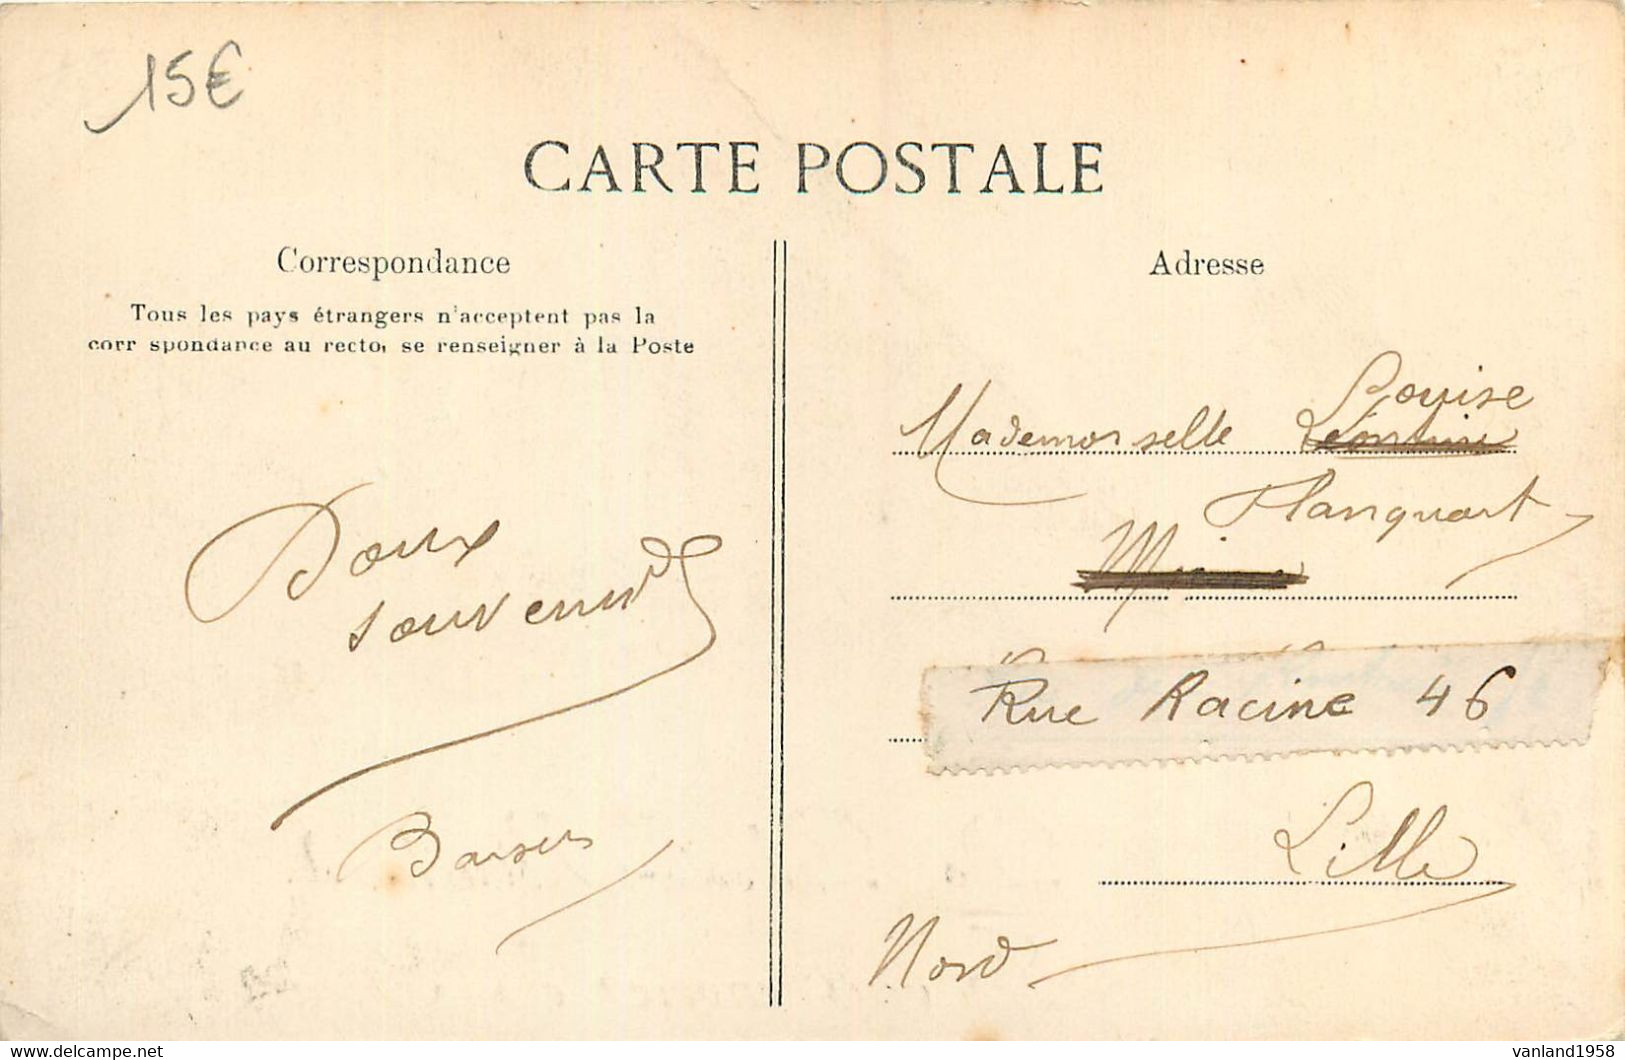 15€
CARTE POSTALE
Correspondance
Tous les pays étrangers n'acceptent pas la
corr spondance au recto, se renseigner à la Poste
Doux
souvenir
Baisers
Adresse
Louise
Mademoiselle
Flanquart
Rue Racine 46
Lille
Nord
delcampe.net
vanland1958